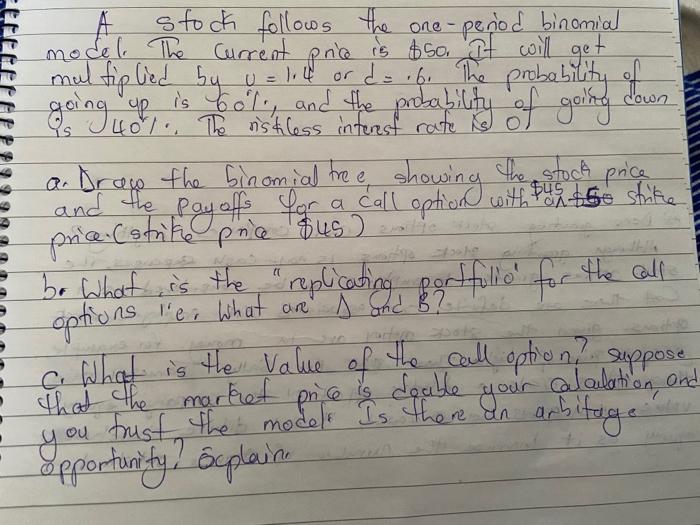 A stock follows the one-period binomial
model. The current price is $50. It will get
multiplied by u = 1.4 or d = .6. The probability of
going up is 60%, and the probability of going down
is 40%. The riskless interest rate is 0!
a. Draw the binomial tree, showing the stock price
and the payoffs for a call option with $45 strike
price. (strike price $45)
b. What is the "replicating portfolio' for the call
options i'e. What are Δ and B?
c. What is the Value of the call option? suppose
that the market price is double your calculation, and
you trust the model. Is there an arbitage
opportunity? Explain.